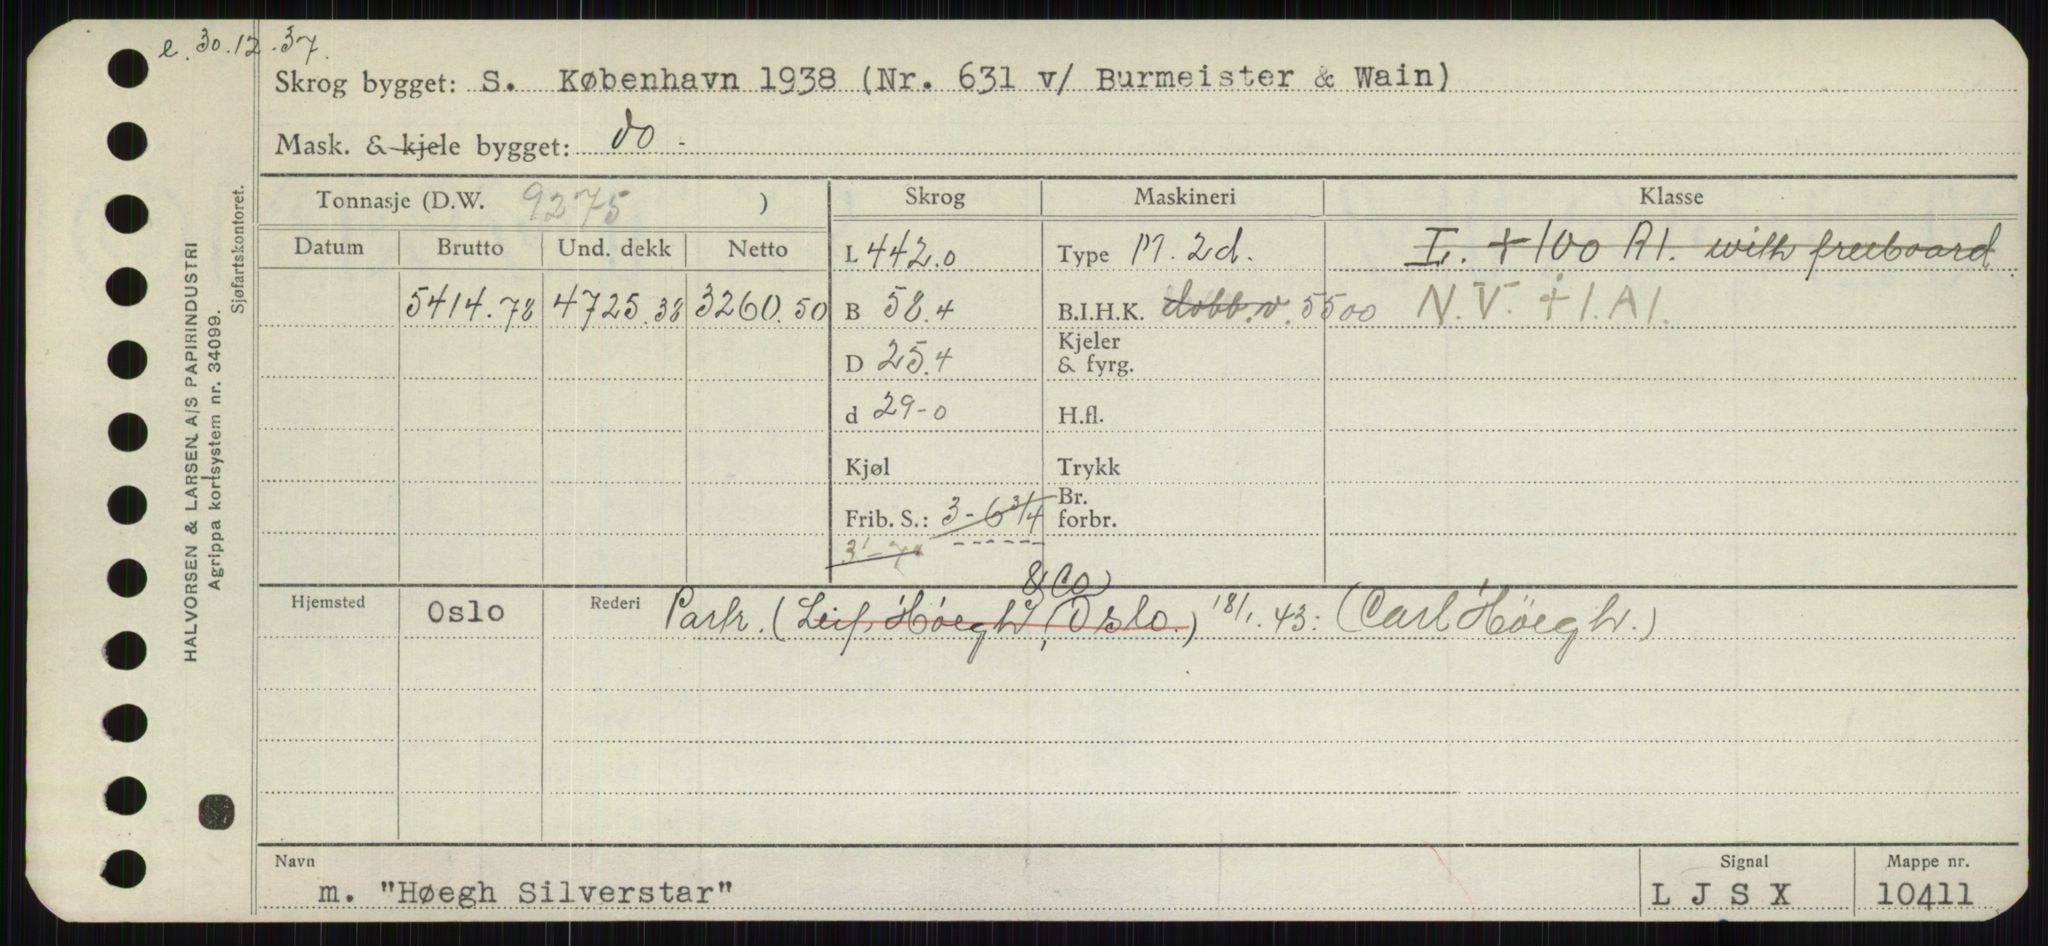 e. 30.12.37.
Skrog bygget: S. København 1938 (Nr. 631 v/ Burmeister & Wain)
Mask. & kjele bygget: do -
Tonnasje (D.W. 9275 )
Skrog
Maskineri
Klasse
Datum
Brutto
Und. dekk
Netto
L 442.0
Type M. 2d.
L. +100 A1. with freeboard
5414.78
4725.38
3260.50
B 58.4
B.I.H.K. dobb.v. 5500
N.V. +1.A1.
D 25.4
Kjeler
& fyrg.
d 29-0
H.fl.
Kjøl
Trykk
Frib. S.: 3-6 3/4
Br.
forbr.
3'-7"
Hjemsted
Oslo
Rederi
& Co
Park. (Leif Höegh, Oslo.) 18/1.43: (Carl Höegh.)
Navn
m. "Høegh Silverstar"
Signal
L J S X
Mappe nr.
10411
HALVORSEN & LARSEN A/S PAPIRINDUSTRI
Agrippa kortsystem nr. 34099.
Sjøfartskontoret.